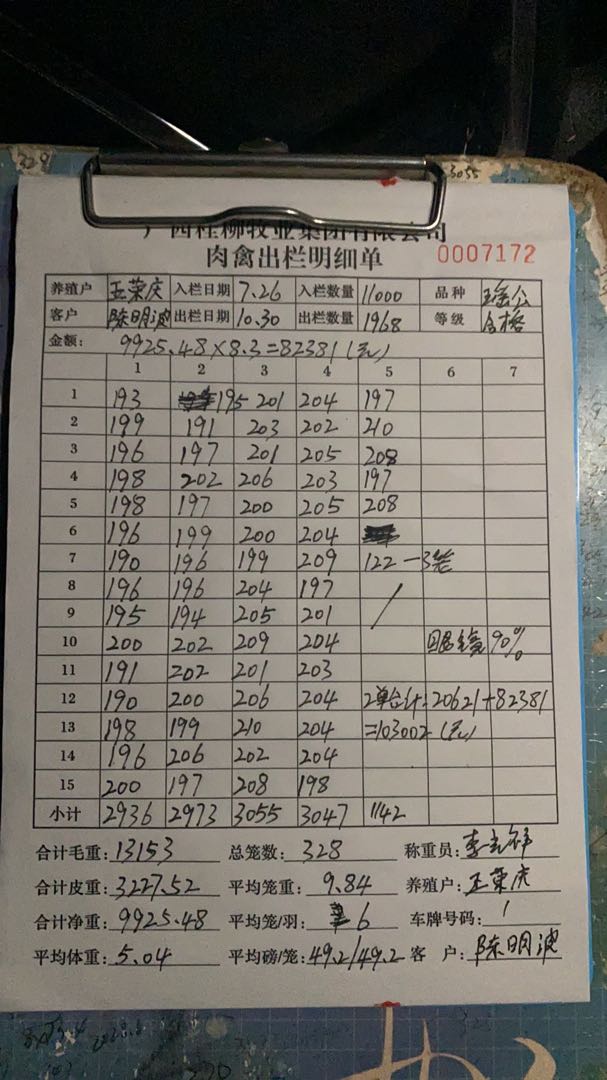 广西桂柳牧业集团有限公司
肉禽出栏明细单 0007172
养殖户 王荣庆 入栏日期 7.26 入栏数量 11000 品种 瑶公
客户 陈明波 出栏日期 10.30 出栏数量 1968 等级 合格
金额: 9925.48×8.3=82381(元)
1 2 3 4 5 6 7
1 193 195 201 204 197
2 199 191 203 202 210
3 196 197 201 205 208
4 198 202 206 203 197
5 198 197 200 205 208
6 196 199 200 204
7 190 196 199 209 122-3笼
8 196 196 204 197
9 195 194 205 201
10 200 202 209 204 90%
11 191 202 201 203
12 190 200 206 204 2单合计:20621+82381
13 198 199 210 204 =103002(元)
14 196 206 202 204
15 200 197 208 198
小计 2936 2973 3055 3047 1142
合计毛重:13153 总笼数:328 称重员:
合计皮重:3227.52 平均笼重:9.84 养殖户:王荣庆
合计净重:9925.48 平均笼/羽:6 车牌号码:1
平均体重:5.04 平均磅/笼:49.2/49.2 客户:陈明波
3055